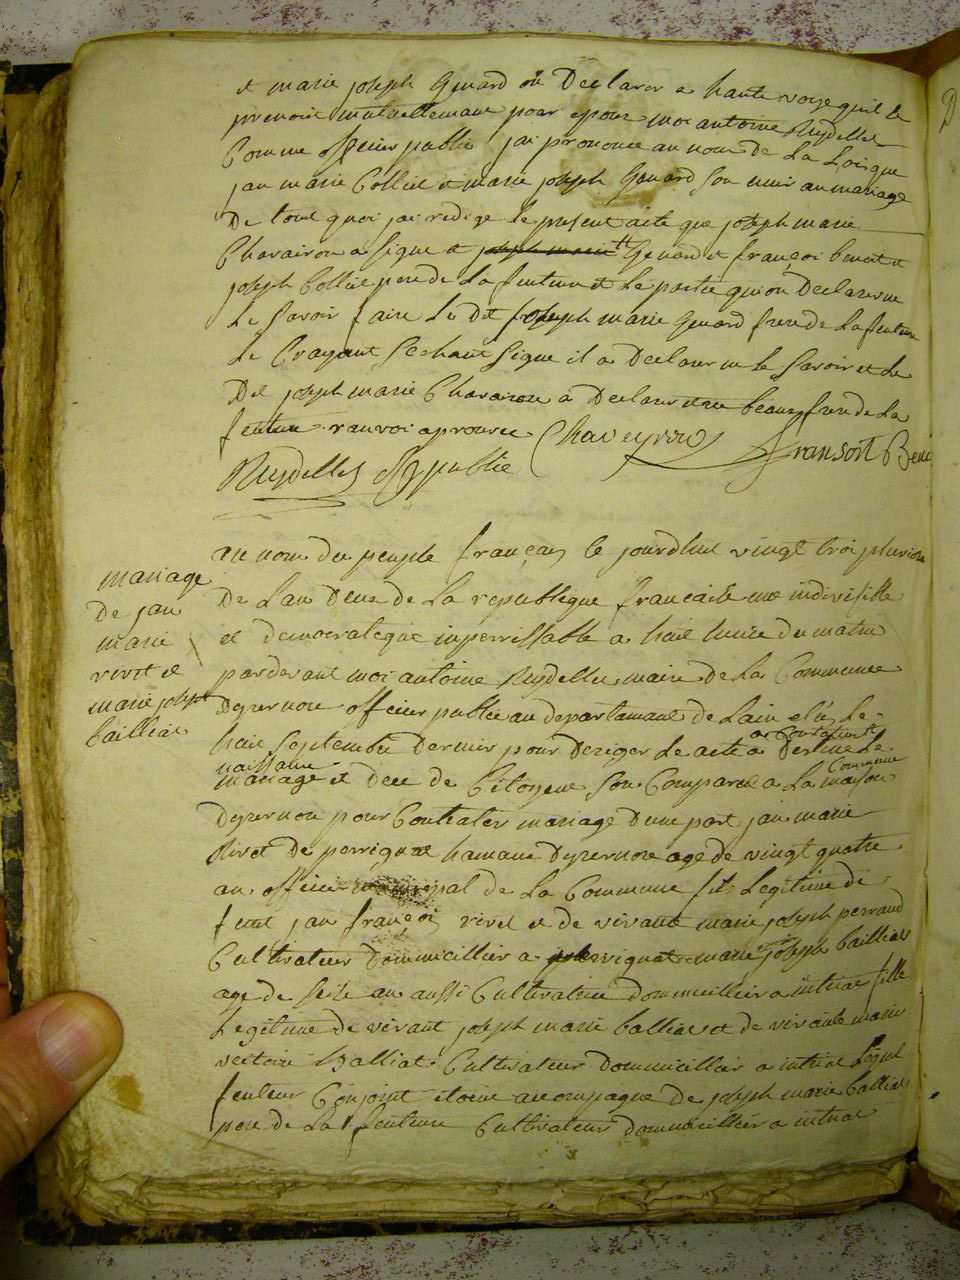 et marie joseph Genard on Declarer a haute voye quil le
prenoit mutuellemant pour epoux moi antoine Ruydellet
Comme officier publie jai prononce au nom De La Loi que
jan marie Colliet et marie joseph Genard son unir au mariage
De tout quoi jai redige le present aite que joseph marie
Chavairon a signe et joseph marie Genard et françoi benoit et
joseph Colliet pere de La futeure et Le partie qui on Declarer ne
Le savoir faire Le dit joseph marie Genard frere de La futeure
Le Crayant sechant signe il a Declarer ne le savoir et Le
Dit joseph marie Chavairon a Declarer etre beaux frere de La
futeure ranvoi aprouvee Chaveyron fransoit Beno
Ruydellet off publie
mariage
De jan
marie
rivet et
marie joseph
bailliat
au nom du peuple françaiz le jourdhui vingt troi pluviose
De Lan Deux de La republeque francaise une indivisible
et democrateque inperrissable a huit heure du matin
pardevant moi antoine Ruydellet maire de La Commune
Dyzernore officier publie au departamant de Lain elu Le
huit septembre Dernier pour Deriger Le acte a Destine Le
naissance
mariage et dece de Citoyens son Comparue a La maison Commune
Dyzernore pour Contrater mariage Dune part jan marie
Rivet De perrignat hamaux Dyzernore age de vingt quatre
an officier municipal de La Commune fil Legitime de
feut jan françoi rivet et de vivante marie joseph perraud
Cultivateur Dommicillier a perrignat marie joseph bailliat
age de seise an aussi Cultivatrice dommicillier a intriat fille
Legitime de vivant joseph marie balliat et de vivante marie
victoire Balliat Cultivateur Dommicillier a intriat Lequel
futeur Conjoint etoint acompagne de joseph marie balliat
pere de La futeure Cultivateur dommicillier a intriat